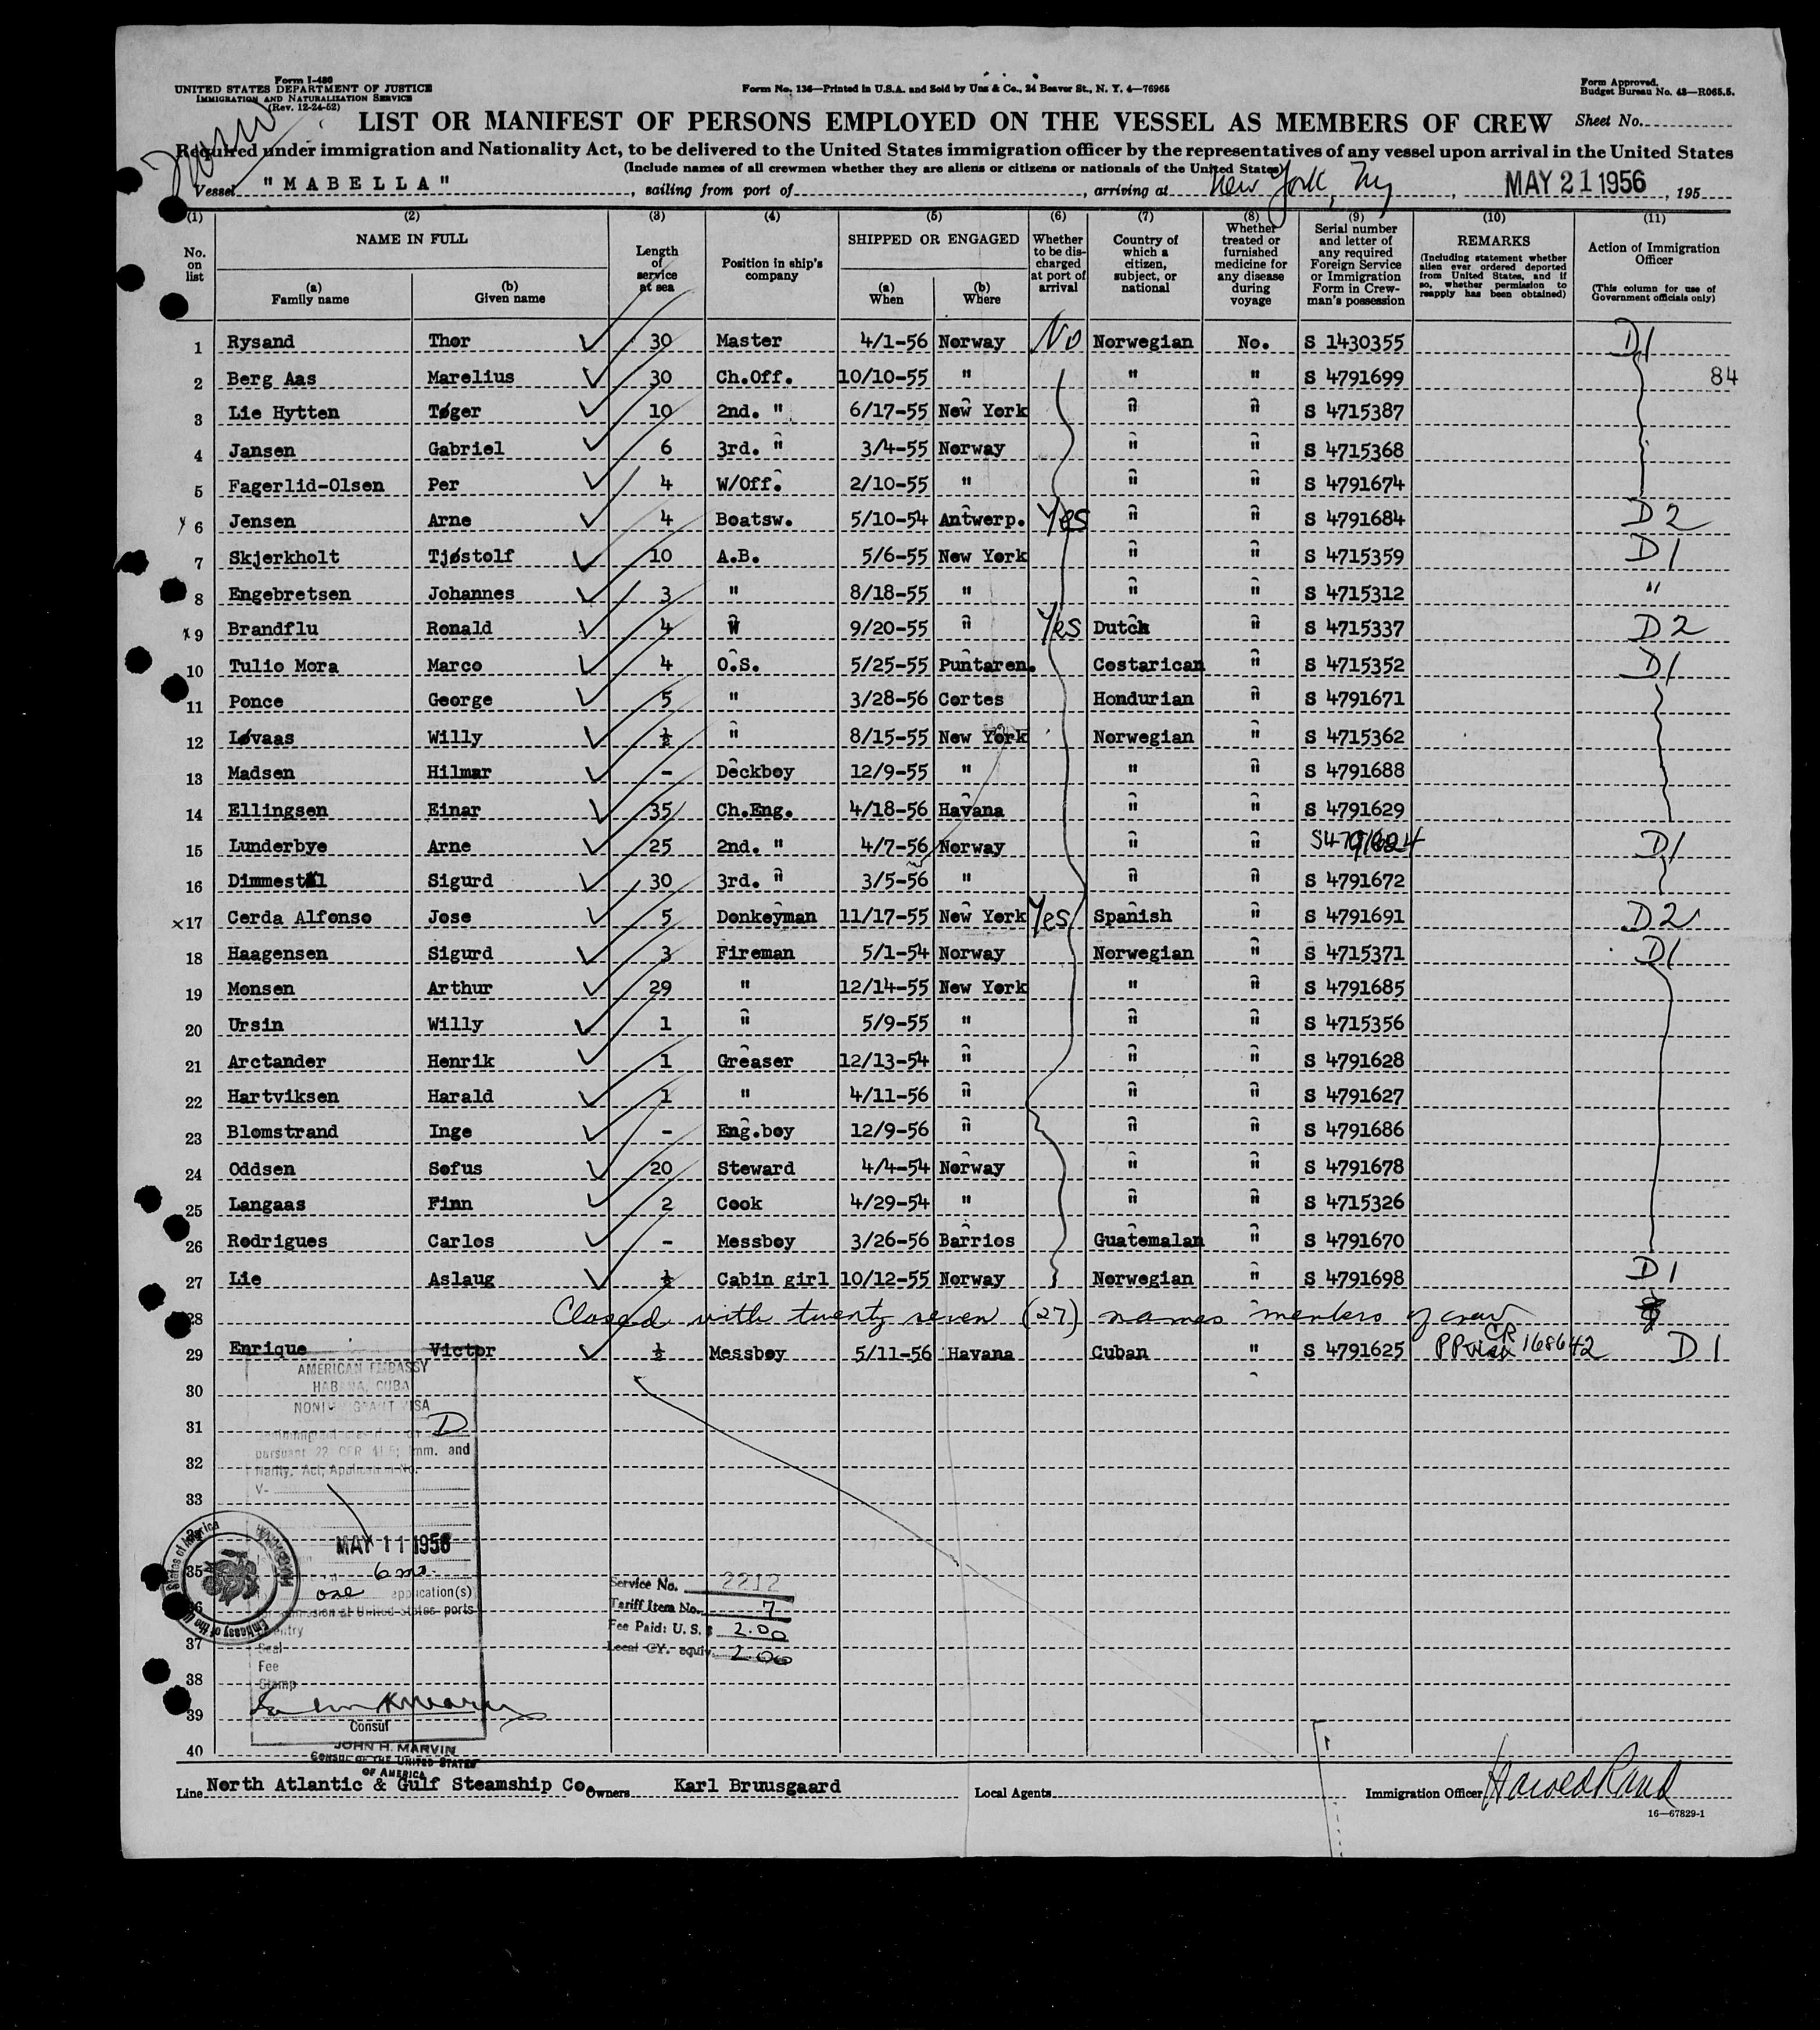 Form I-480
UNITED STATES DEPARTMENT OF JUSTICE
IMMIGRATION AND NATURALIZATION SERVICE
(Rev. 12-24-52)
Form No. 136—Printed in U.S.A. and Sold by Unz & Co., 24 Beaver St., N. Y. 4—76965
Form Approved.
Budget Bureau No. 43—R065.5.
LIST OR MANIFEST OF PERSONS EMPLOYED ON THE VESSEL AS MEMBERS OF CREW Sheet No.
Required under immigration and Nationality Act, to be delivered to the United States immigration officer by the representatives of any vessel upon arrival in the United States
(Include names of all crewmen whether they are aliens or citizens or nationals of the United States)
Vessel "MABELLA", sailing from port of, arriving at New York, Ny, MAY 21 1956, 195
(1) (2) (3) (4) (5) (6) (7) (8) (9) (10) (11)
No. on list
NAME IN FULL
(a) Family name
(b) Given name
Length of service at sea
Position in ship's company
SHIPPED OR ENGAGED
(a) When
(b) Where
Whether to be discharged at port of arrival
Country of which a citizen, subject, or national
Whether treated or furnished medicine for any disease during voyage
Serial number and letter of any required Foreign Service or Immigration Form in Crewman's possession
REMARKS
(Including statement whether alien ever ordered deported from United States, and if so, whether permission to reapply has been obtained)
Action of Immigration Officer
(This column for use of Government officials only)
1 Rysand Thor 30 Master 4/1-56 Norway No Norwegian No. S 1430355 D1
2 Berg Aas Marelius 30 Ch.Off. 10/10-55 " " " S 4791699 84
3 Lie Hytten Tøger 10 2nd. " 6/17-55 New York " " S 4715387
4 Jansen Gabriel 6 3rd. " 3/4-55 Norway " " S 4715368
5 Fagerlid-Olsen Per 4 W/Off. 2/10-55 " " " S 4791674
6 Jensen Arne 4 Boatsw. 5/10-54 Antwerp. Yes " " S 4791684 D2
7 Skjerkholt Tjøstolf 10 A.B. 5/6-55 New York " " S 4715359 D1
8 Engebretsen Johannes 3 " 8/18-55 " " " S 4715312 "
x 9 Brandflu Ronald 4 " 9/20-55 " Yes Dutch " S 4715337 D2
10 Tulio Mora Marco 4 O.S. 5/25-55 Puntaren. Costarican " S 4715352 D1
11 Ponce George 5 " 3/28-56 Cortes Hondurian " S 4791671
12 Løvaas Willy ½ " 8/15-55 New York Norwegian " S 4715362
13 Madsen Hilmar - Deckboy 12/9-55 " " " S 4791688
14 Ellingsen Einar 35 Ch.Eng. 4/18-56 Havana " " S 4791629
15 Lunderbye Arne 25 2nd. " 4/7-56 Norway " " S4791624 D1
16 Dimmestål Sigurd 30 3rd. " 3/5-56 " " " S 4791672
x 17 Cerda Alfonso Jose 5 Donkeyman 11/17-55 New York Yes Spanish " S 4791691 D2
18 Haagensen Sigurd 3 Fireman 5/1-54 Norway Norwegian " S 4715371 D1
19 Monsen Arthur 29 " 12/14-55 New York " " S 4791685
20 Ursin Willy 1 " 5/9-55 " " " S 4715356
21 Arctander Henrik 1 Greaser 12/13-54 " " " S 4791628
22 Hartviksen Harald 1 " 4/11-56 " " " S 4791627
23 Blomstrand Inge - Eng.boy 12/9-56 " " " S 4791686
24 Oddsen Sofus 20 Steward 4/4-54 Norway " " S 4791678
25 Langaas Finn 2 Cook 4/29-54 " " " S 4715326
26 Rodrigues Carlos - Messboy 3/26-56 Barrios Guatemalan " S 4791670
27 Lie Aslaug ½ Cabin girl 10/12-55 Norway Norwegian " S 4791698 D1
28 Closed with twenty seven (27) names members of crew
29 Enrique Victor ½ Messboy 5/11-56 Havana Cuban " S 4791625 PP CR 168642 D1
30
31
32
33
35
36
37
38
39
40
AMERICAN EMBASSY
HABANA, CUBA
NONIMMIGRANT VISA
D
pursuant 22 CFR 41.6; Imm. and
Natlty. Act, Application No.
V-
MAY 11 1956
6 mo.
one application(s)
for admission at United States ports
of entry
Seal
Fee
Stamp
Consul
JOHN H. MARVIN
CONSUL OF THE UNITED STATES
OF AMERICA
Embassy of the United States of America
Service No. 2212
Tariff Item No. 7
Fee Paid: U. S. $ 2.00
Local CY. equiv. 2.00
Line North Atlantic & Gulf Steamship Co. Owners Karl Bruusgaard Local Agents Immigration Officer Harold Rand
16—67829-1